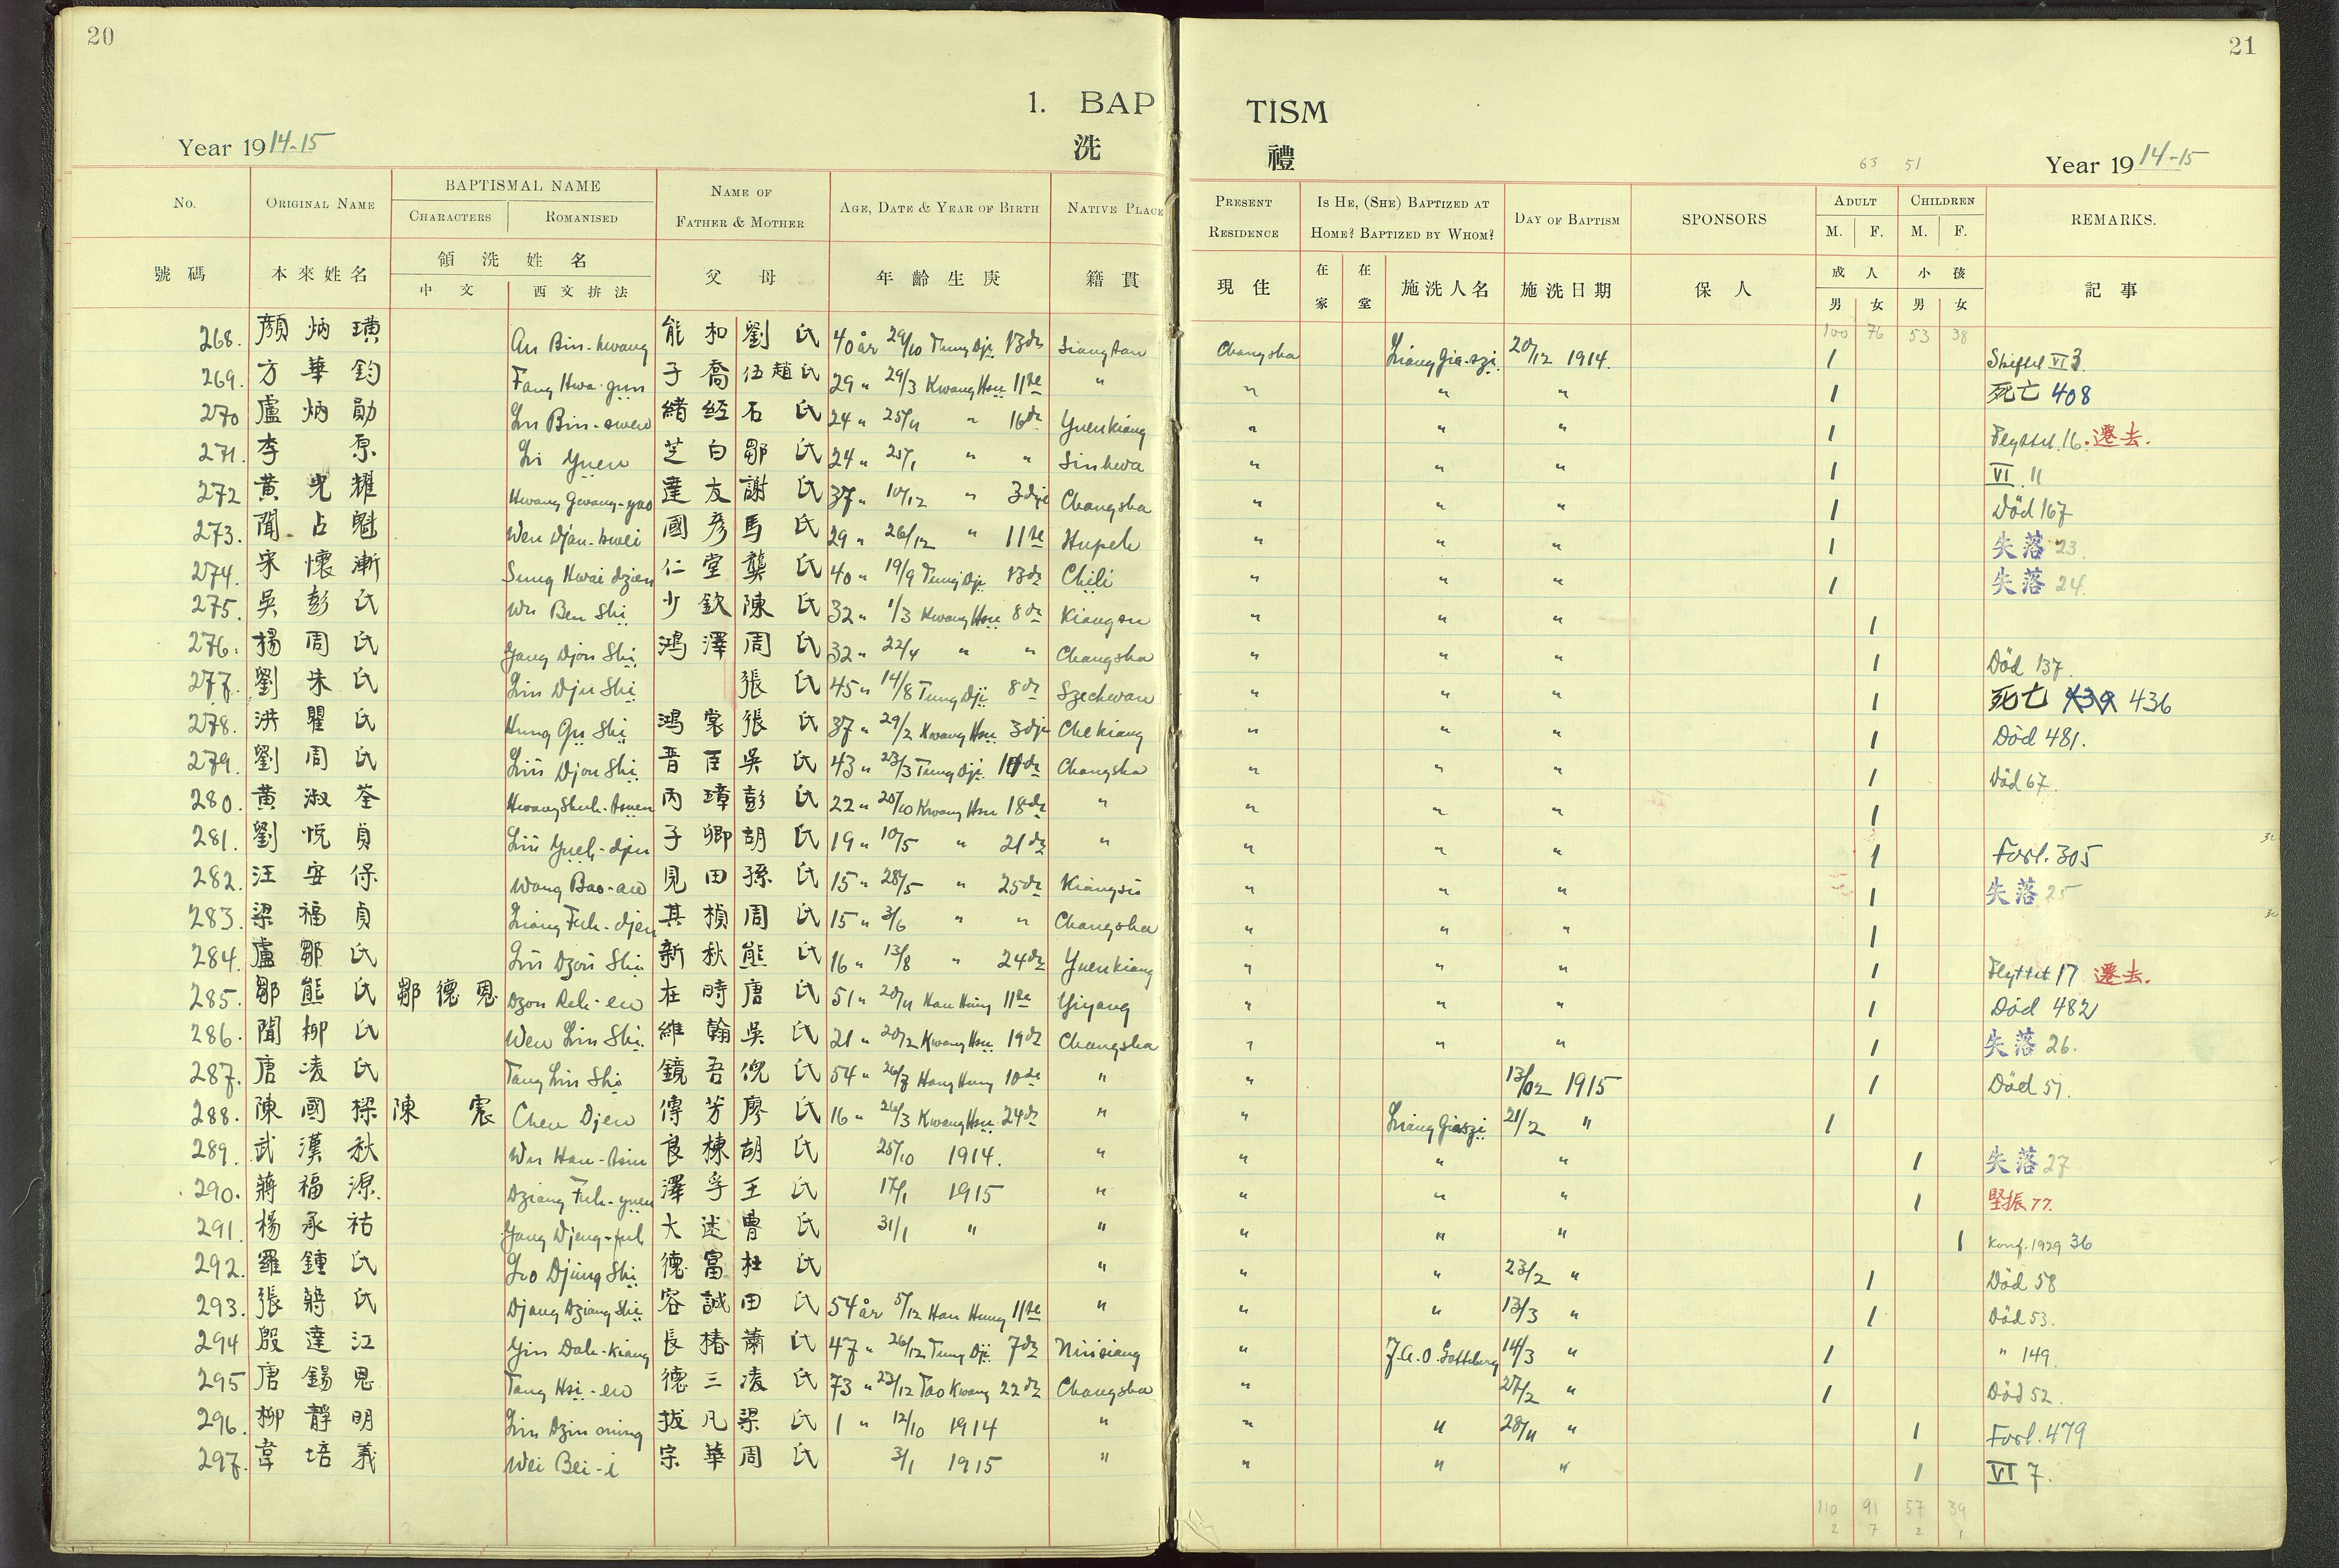 20
1. BAP
Year 1914-15
洗
No. ORIGINAL NAME BAPTISMAL NAME NAME OF FATHER & MOTHER AGE, DATE & YEAR OF BIRTH NATIVE PLACE
CHARACTERS ROMANISED
號碼 本來姓名 領洗姓名 父母 年齡生庚 籍貫
中文 西文拚法
268. 顏炳璜 An Bin-hwang 能和 劉氏 40 år 29/10 Tung Dji 13 Siangtan
269. 方華鈞 Fang Hwa-gün 子喬 伍趙氏 29 " 29/3 Kwang Hsü 11te "
270 盧炳勛 緒經 石氏 24 " 25/11 " 16 Yuenkiang
271. 李原 Li Yuen 芝白 鄒氏 24 " 25/1 " " Sinhwa
272 黃光耀 Hwang Gwang-yao 達友 謝氏 37 " 10/12 " 3dje Changsha
273. 聞占魁 Wen Djan-kwei 國彥 馬氏 29 " 26/12 " 11te Hupeh
274. 宋懷漸 Sung Hwai dzien 仁堂 龔氏 40 " 19/9 Tung Dji 13 Chili
275. 吳彭氏 Wu Ben Shi 少欽 陳氏 32 " 1/3 Kwang Hsü 8 Kiangsu
276. 楊周氏 Yang Djou Shi 鴻澤 周氏 32 " 22/4 " " Changsha
277. 劉朱氏 Liu Dju Shi 張氏 45 " 14/8 Tung Dji 8 Szechwan
278. 洪瞿氏 Hung Gü Shi 鴻裳 張氏 37 " 29/2 Kwang Hsü 3dje Chekiang
279. 劉周氏 Liu Djou Shi 晋臣 吳氏 43 " 23/3 Tung Dji Changsha
280. 黃淑荃 Hwang Shuh-tsuen 丙璋 彭氏 22 " 20/10 Kwang Hsü 18 "
281. 劉悅貞 Liu Yueh-djen 子卿 胡氏 19 " 10/5 " 21 "
282. 汪安保 Wang Bao-an 見田 孫氏 15 " 28/5 " 25 Kiangsi
283. 梁福貞 Liang Fuh-djen 其楨 周氏 15 " 3/6 " " Changsha
284. 盧鄒氏 新秋 熊氏 16 " 13/8 " 24 Yuenkiang
285. 鄒熊氏 鄒德恩 Dzou Deh-en 在時 唐氏 51 " 20/11 Han Hung 11te Yiyang
286. 聞柳氏 Wen Liu Shi 維翰 吳氏 21 " 20/2 Kwang Hsü 19 Changsha
287. 唐凌氏 Tang Lin Shi 鏡吾 倪氏 54 " 26/7 Hang Hung 10 "
288. 陳國樑 陳震 Chen Djen 傳芳 廖氏 16 " 26/3 Kwang Hsü 24 "
289. 武漢秋 Wu Han-tsiu 良棟 胡氏 25/10 1914. "
290. 蔣福源 Dziang Fuh-yuen 澤孚 王氏 17/1 1915 "
291. 楊承祜 Yang Djeng-fuh 大述 曹氏 31/1 " "
292. 羅鍾氏 Lo Djung Shi 德富 杜氏 "
293. 張蔣氏 Djang Dziang Shi 容誠 田氏 54 år 5/12 Han Hung 11te "
294 殷達江 Yin Dah-kiang 長椿 蕭氏 47 " 26/12 Tung Dji 7 Ninsiang
295 唐錫恩 Tang Hsi-en 德三 凌氏 73 " 23/12 Tao Kwang 22 Changsha
296. 柳靜明 Liu Dzin ming 拔凡 梁氏 1 " 12/10 1914 "
297. 韋培義 Wei Bei-i 宗華 周氏 3/1 1915 "
21
TISM
禮
63 51
Year 1914-15
PRESENT RESIDENCE IS HE, (SHE) BAPTIZED AT HOME? BAPTIZED BY WHOM? DAY OF BAPTISM SPONSORS ADULT CHILDREN REMARKS.
M. F. M. F.
現住 在家 在堂 施洗人名 施洗日期 保人 成人 小孩 記事
男 女 男 女
100 76 53 38
Changsha Liang Gia-szi 20/12 1914. 1 Skiftet VI 3.
" " " 1 死亡 408
" " " 1 Flyttet. 16. 遷去.
" " " 1 VI 11
" " " 1 Död 167
" " " 1 失落 23.
" " " 1 失落 24.
" " " 1
" " " 1 Död 137.
" " " 1 死亡 439 436
" " " 1 Död 481.
" " " 1 Död 67.
" " " 1
" " " 1 Forl. 305
" " " 1 失落 25
" " " 1
" " " 1 Flyttet 17 遷去.
" " " 1 Död 482
" " " 1 失落 26.
" 13/02 1915 1 Död 51.
" Liang Giaszi 21/2 " 1
" " " 1 失落 27
" " " 1 堅振 77.
" " " 1 Konf. 1929 36
" " 23/2 " 1 Död 58
" " 13/3 " 1 Död 53.
" J.A.O. Gotteberg 14/3 " 1 " 149.
" 27/2 " 1 Död 52.
" " 28/11 " 1 Forl. 479
" " " 1 VI 7.
110 91 57 39
2 7 2 1